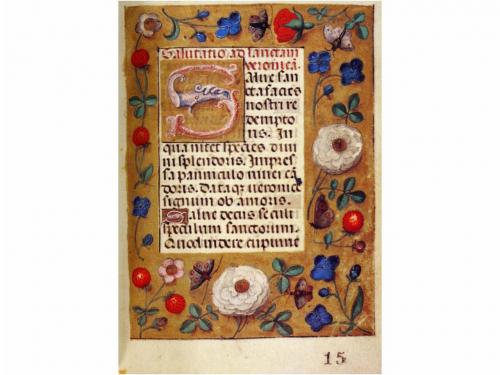 Salutatio ad sanctam
veronicā.
Salue san
cta facies
nostri re
dempto
ris. In
qua nitet species diui
ni splendoris. Impres
sa panniculo niuei cā
doris. Dataq; veronice
signum ob amoris.
Salue decus seculi
speculum sanctorum.
Quod videre cupiunt
15